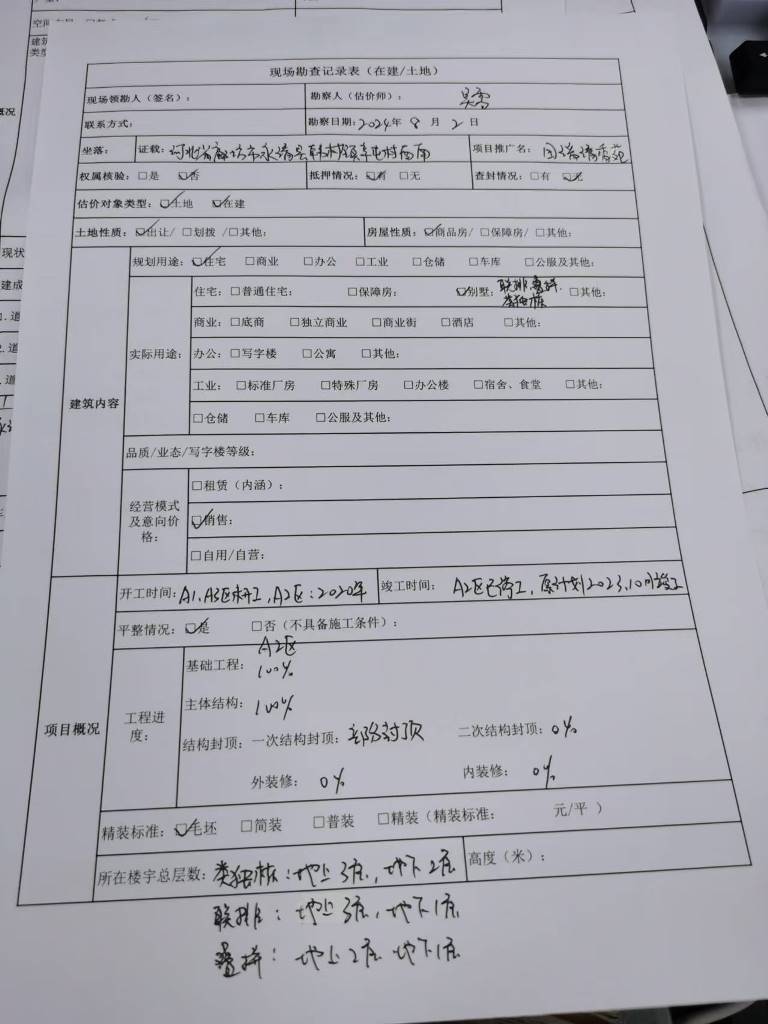 现场勘查记录表（在建/土地）
现场领勘人（签名）： 勘察人（估价师）： 吴雪
联系方式： 勘察日期：2024年 8 月 2 日
坐落： 证载：河北省廊坊市永清县韩村镇 项目推广名：
权属核验：□是 ☑否 抵押情况：☑有 □无 查封情况：□有 ☑无
估价对象类型：☑土地 ☑在建
土地性质：☑出让/□划拨 /□其他： 房屋性质：☑商品房/□保障房/□其他：
建筑内容
规划用途：☑住宅 □商业 □办公 □工业 □仓储 □车库 □公服及其他：
实际用途：
住宅：□普通住宅： □保障房： ☑别墅：联排.叠拼.类独栋 □其他：
商业：□底商 □独立商业 □商业街 □酒店 □其他：
办公：□写字楼 □公寓 □其他：
工业：□标准厂房 □特殊厂房 □办公楼 □宿舍、食堂 □其他：
□仓储 □车库 □公服及其他：
品质/业态/写字楼等级：
经营模式及意向价格：
□租赁（内涵）：
☑销售：
□自用/自营：
项目概况
开工时间：A1、A3区未开工，A2区：2020年 竣工时间： A2区已停工，原计划2023.10月竣工
平整情况：☑是 □否（不具备施工条件）：
工程进度：
A2区
基础工程：100%
主体结构：100%
结构封顶：一次结构封顶：部分封顶 二次结构封顶：0%
外装修： 0% 内装修： 0%
精装标准：☑毛坯 □简装 □普装 □精装（精装标准： 元/平 ）
所在楼宇总层数：类独栋：地上3层，地下2层 高度（米）：
联排：地上3层，地下1层
叠拼：地上2层 地下1层